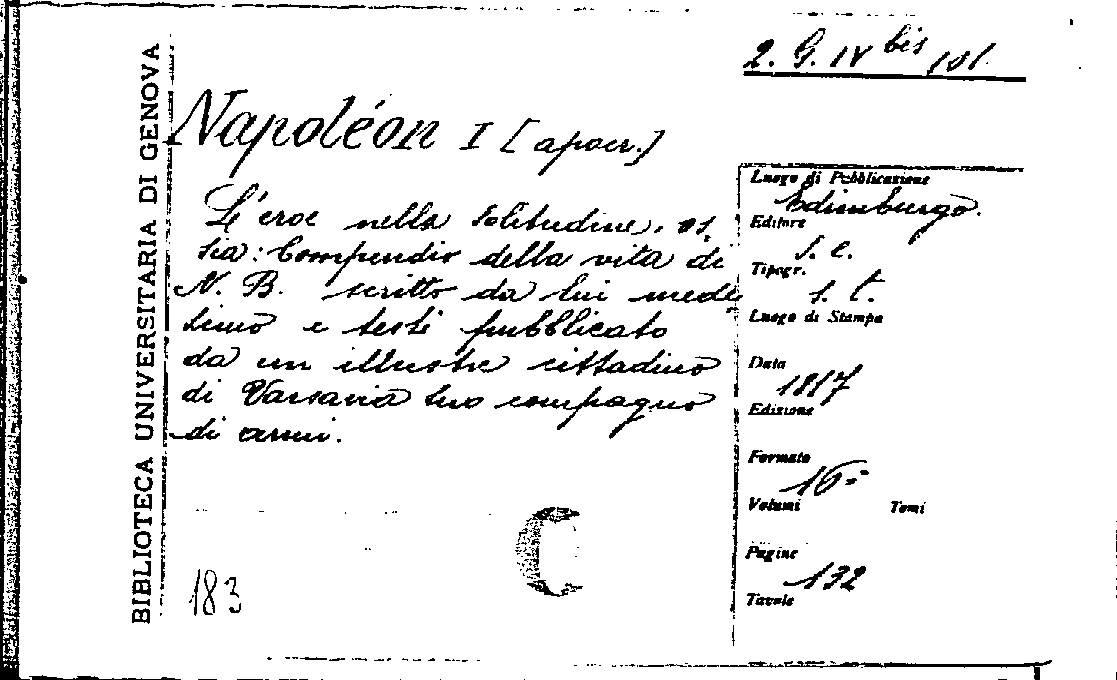 2. G. IV bis 101.
BIBLIOTECA UNIVERSITARIA DI GENOVA
Napoléon I [apocr.]
L'eroe nella solitudine, os,
sia: Compendio della vita di
N. B. scritto da lui mede
simo e testé pubblicato
da un illustre cittadino
di Varsavia suo compagno
di armi.
C
183
Luogo di Pubblicazione
Edimburgo.
Editore
s. e.
Tipogr.
s. t.
Luogo di Stampa
Data
1817
Edizione
Formato
16°
Volumi Tomi
Pagine
132
Tavole